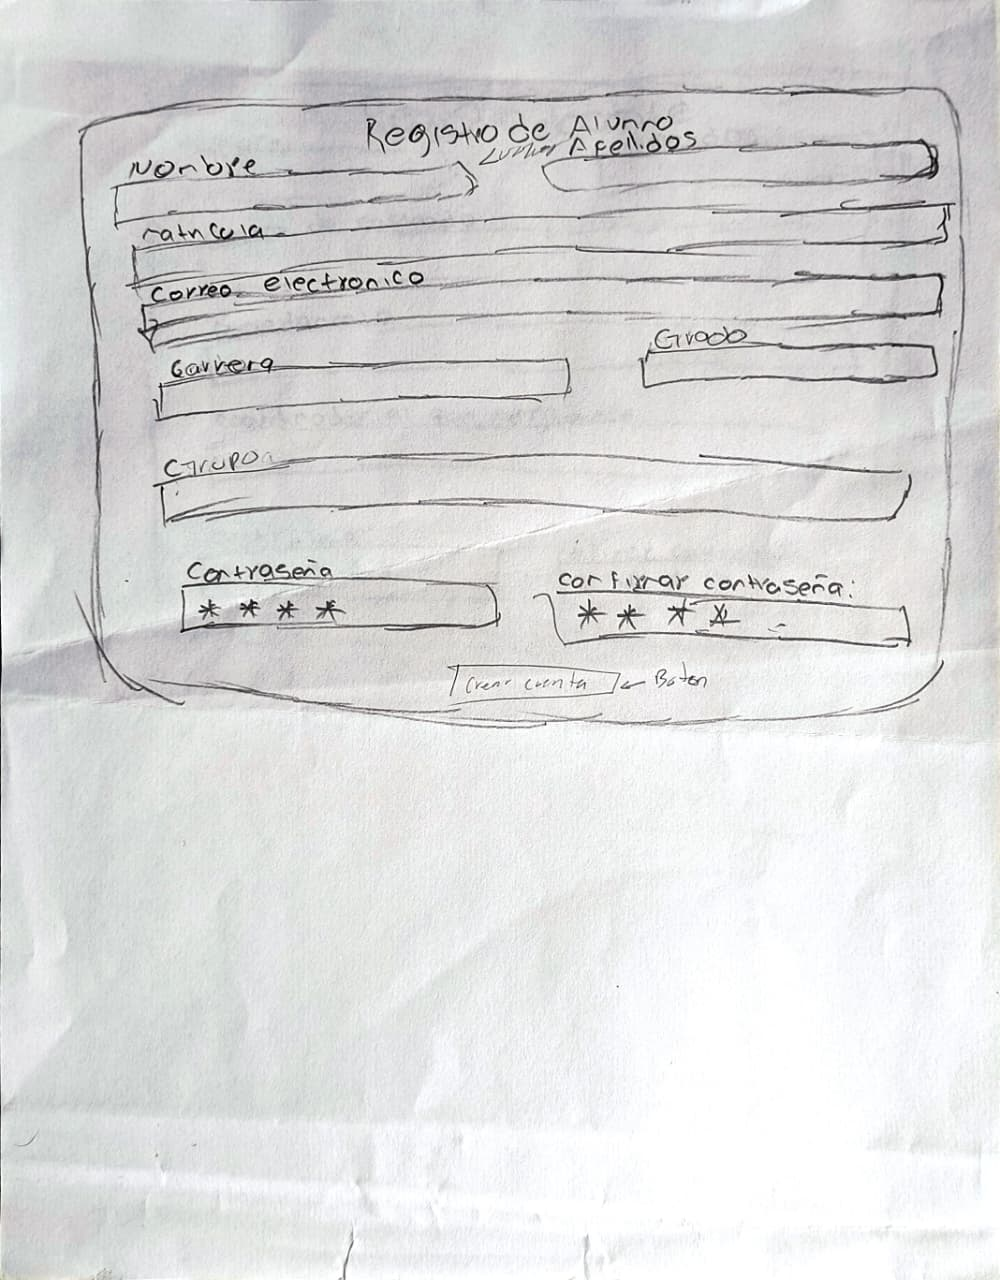 Registro de Alumno
Nombre
Apellidos
matricula
Correo electronico
Carrera
Grado
Grupo
Contraseña
confirmar contraseña:
* * * *
* * * *
Crear cuenta ← Boton